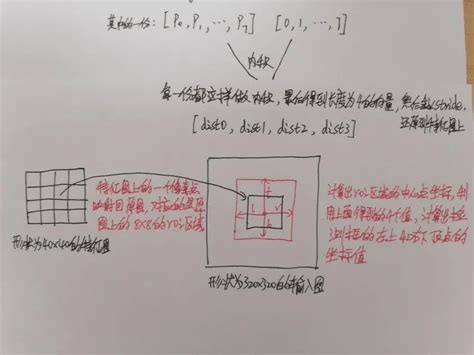 其中的一份: [P0, P1, ..., P7]  [0, 1, ..., 7]
内积
每一份都这样做内积, 最后得到长度为4的向量, 然后乘以stride,
还原到特征图上
[dist0, dist1, dist2, dist3]
特征图上的一个像素点
映射回原图, 对应的是原
图上的8×8的roi区域
计算出roi区域的中心点坐标, 利
用上面得到的4个值, 计算出预
测框的左上和右下顶点的
坐标值
形状为40×40的特征图
形状为320×320的输入图